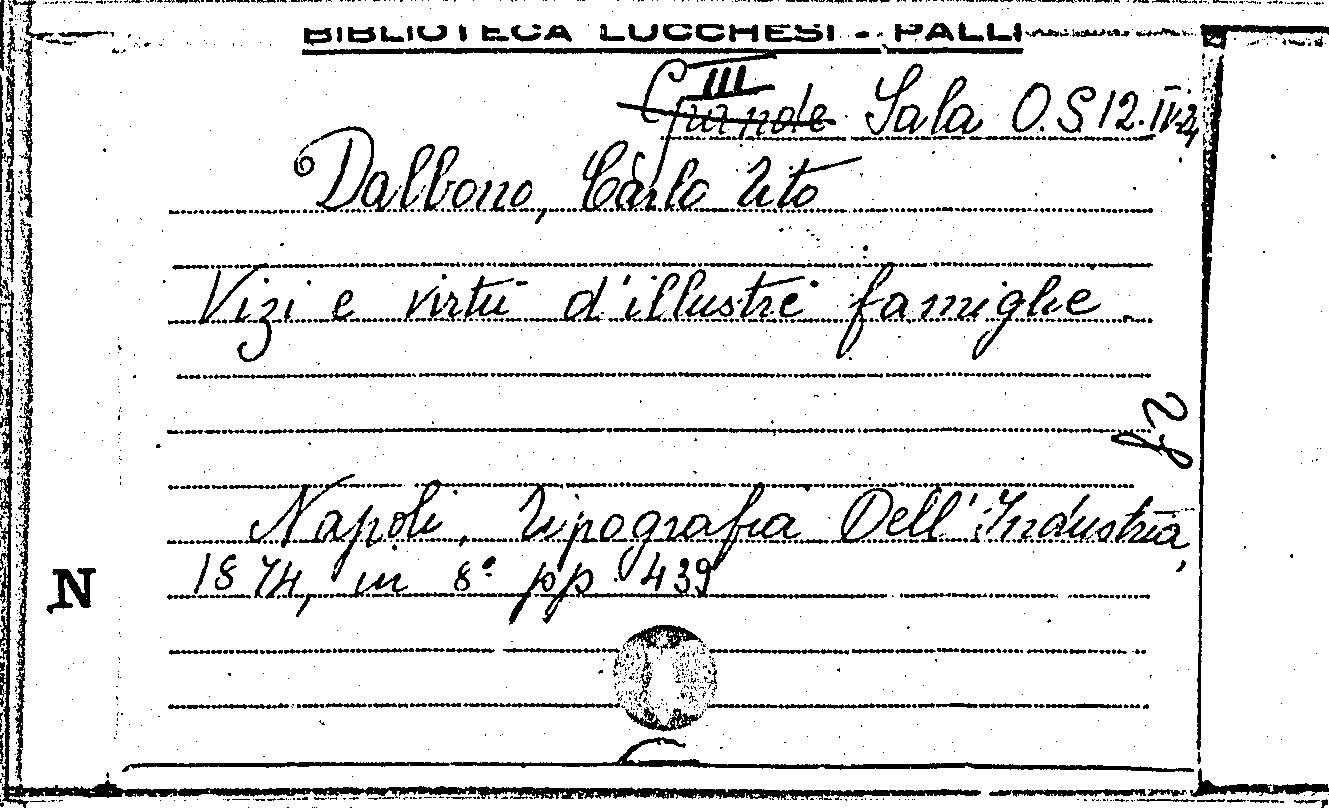 BIBLIOTECA LUCCHESI - PALLI
III
Grande Sala O.S 12. IV.24
Dalbono, Carlo Tito
Vizi e virtù d'illustri famiglie.
Napoli, Tipografia Dell'Industria,
1874, in 8° pp. 439
N